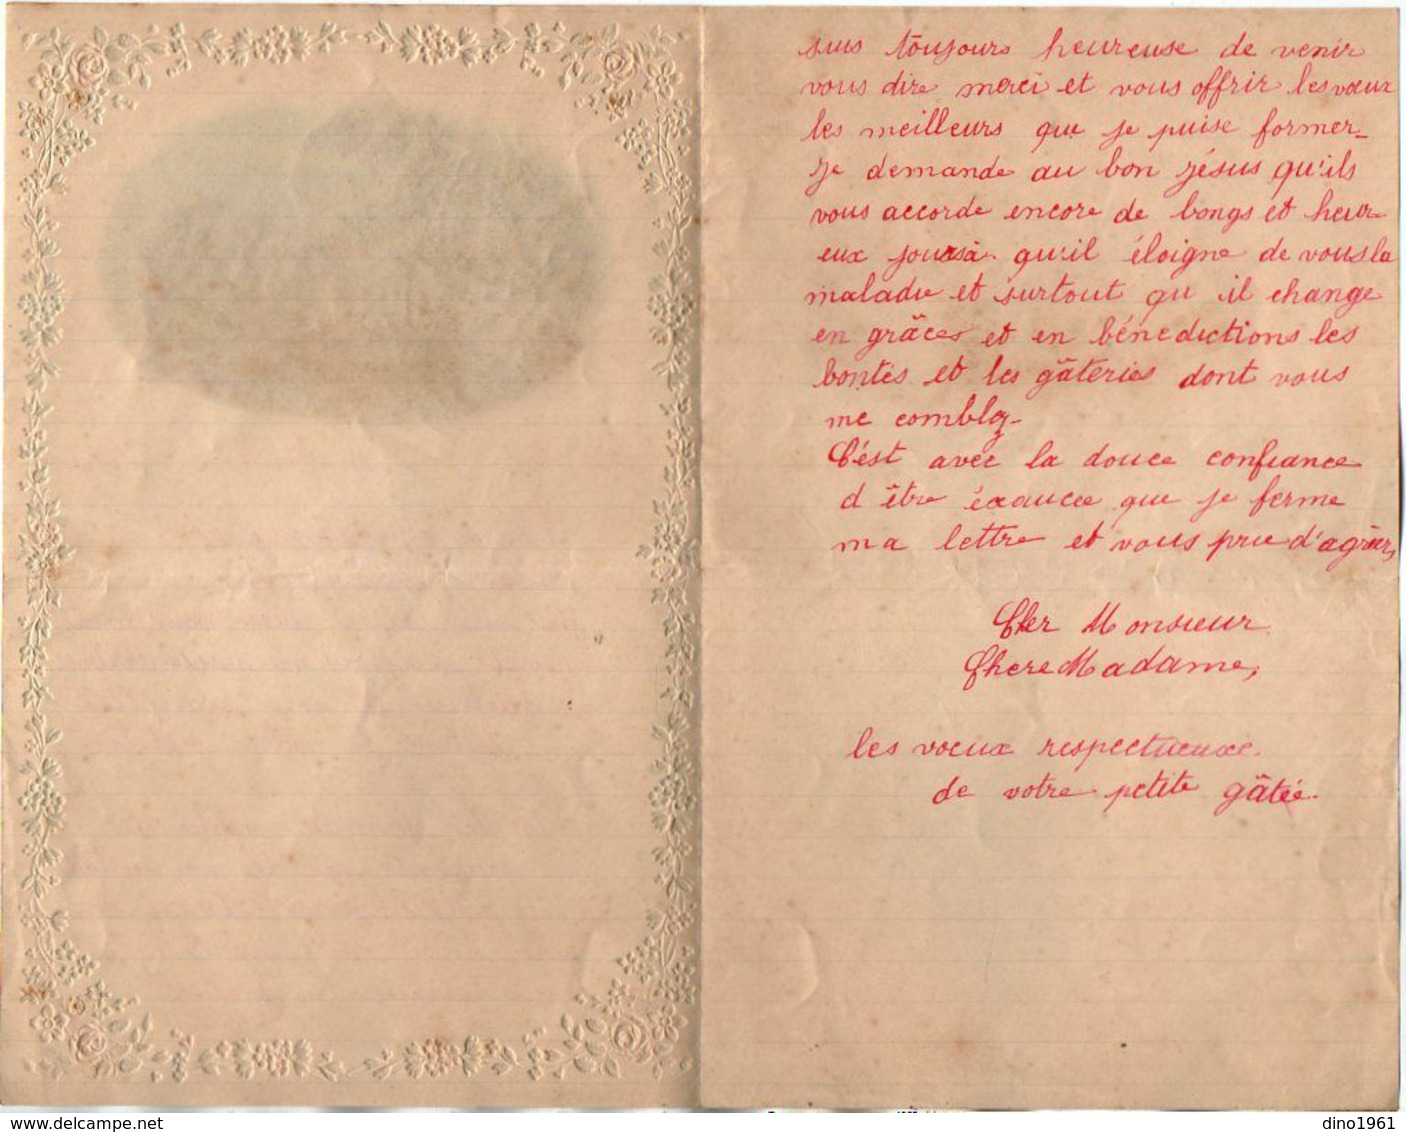 suis toujours heureuse de venir
vous dire merci et vous offrir les vœux
les meilleurs que je puise former_
Je demande au bon Jésus qu'ils
vous accorde encore de longs et heur-
eux jours. qu'il éloigne de vous la
maladie et surtout qu'il change
en grâces et en bénédictions les
bontés et les gâteries dont vous
me comblez-
C'est avec la douce confiance
d'être éxaucée que je ferme
ma lettre et vous prie d'agréer,
Cher Monsieur
Chere Madame,
les voeux respectueuxe
de votre petite gâtée.
delcampe.net
dino1961